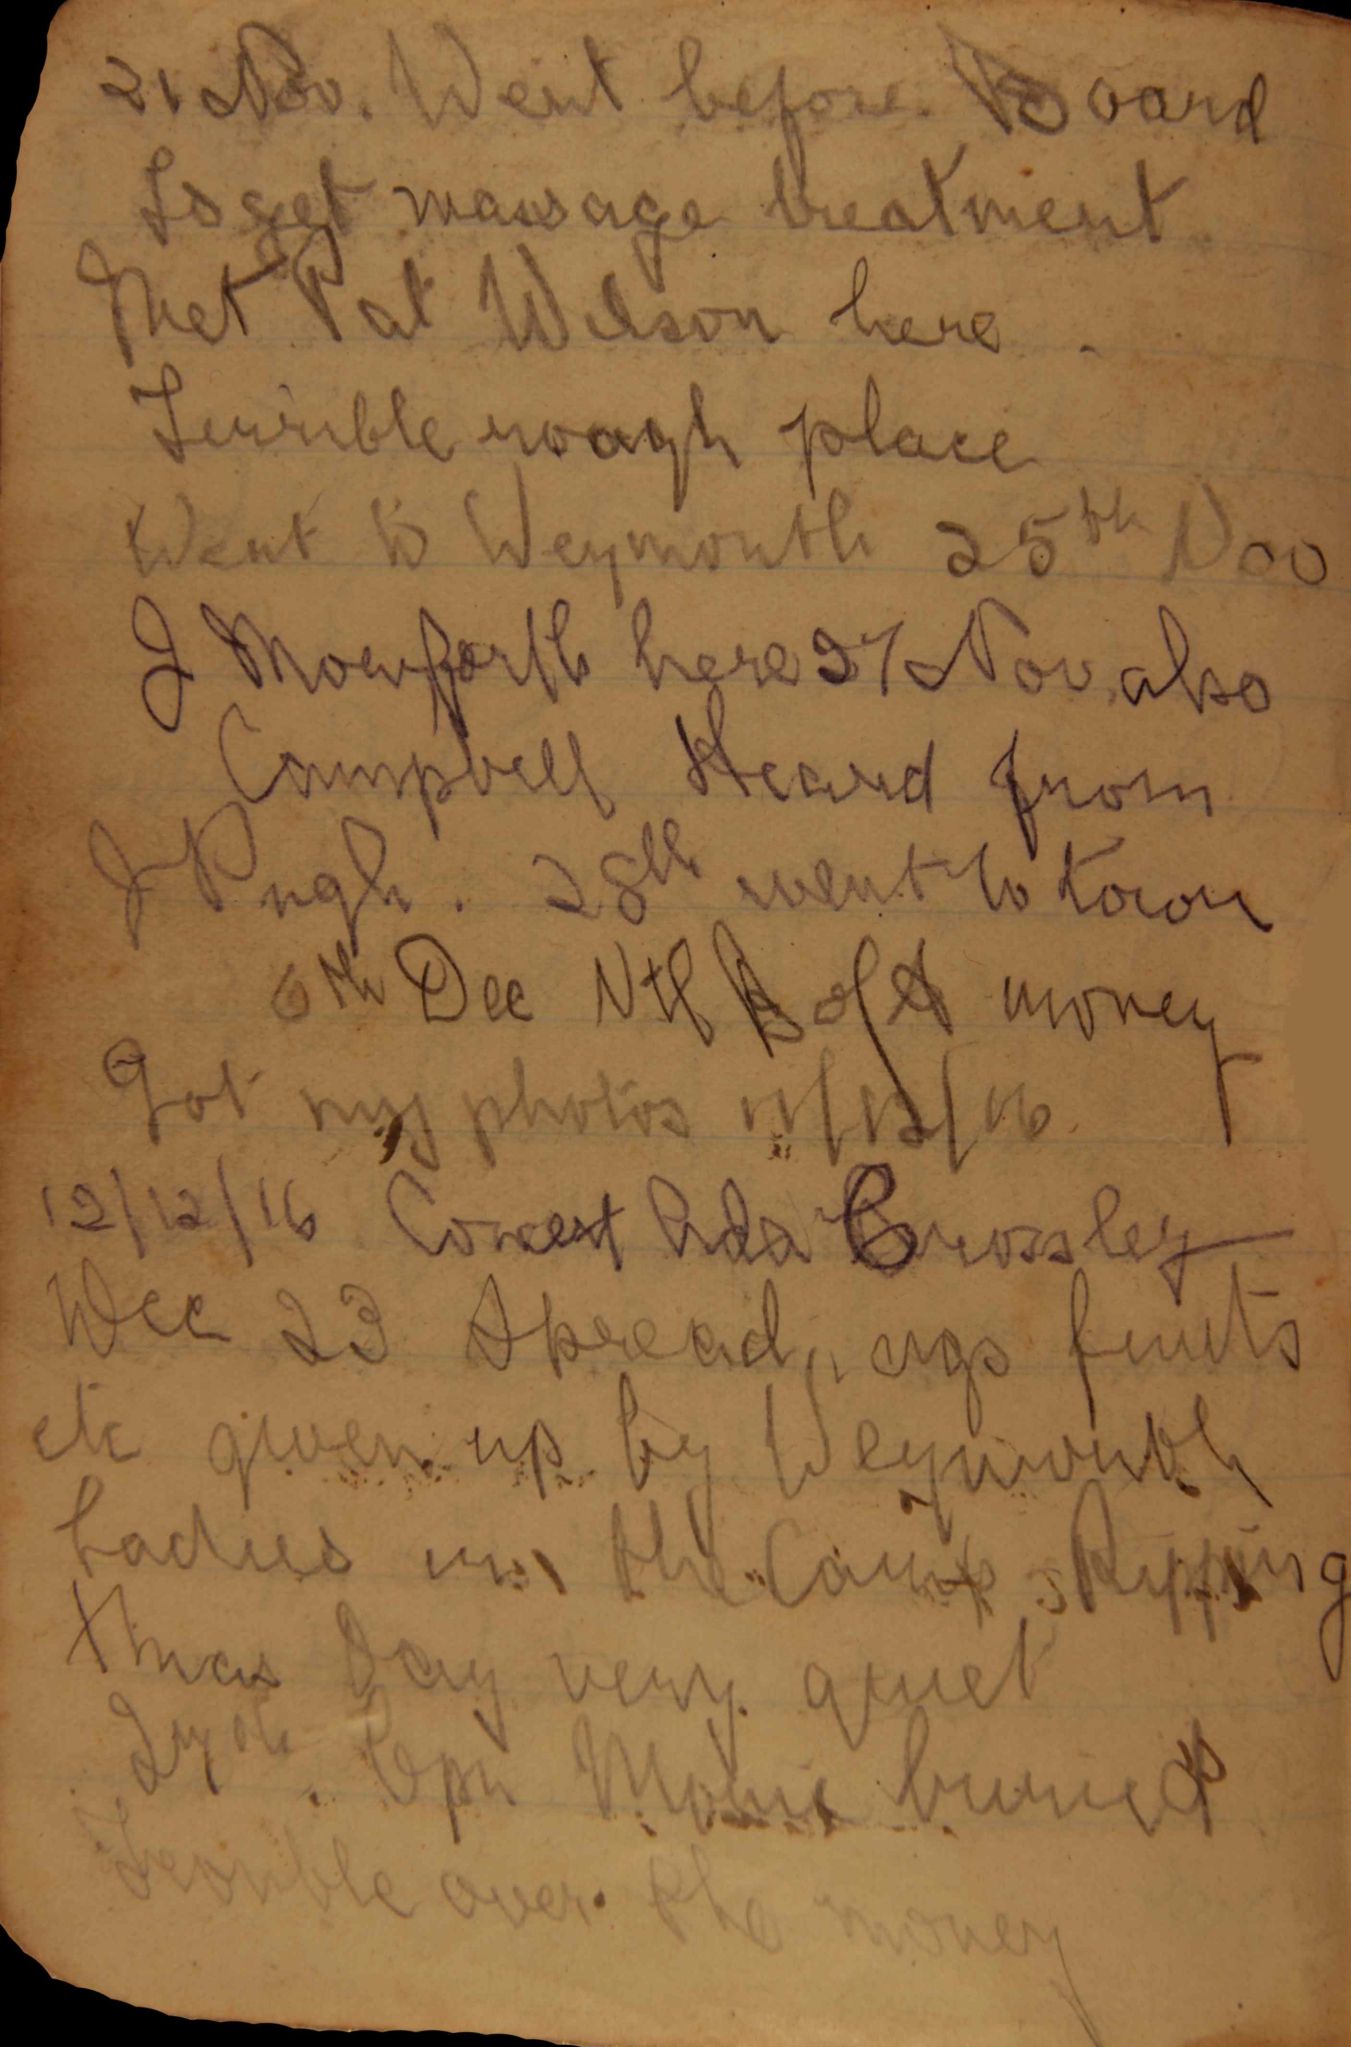 21 Nov. Went before Board
To get massage treatment
Met Pat Wilson here.
Terrible rough place
Went to Weymouth 25th Nov
J here 27 Nov, also
Campbell Heard from
J Pugh. 28th went to town
6th Dec B of A money
Got my photos 11/12/16
12/12/16 Concert Ada Crossley
Dec 23 Spread, cigs fruits
etc given up by Weymouth
Ladies in the Camp, Ripping
Xmas Day very quiet
27th. buried
Trouble over the money